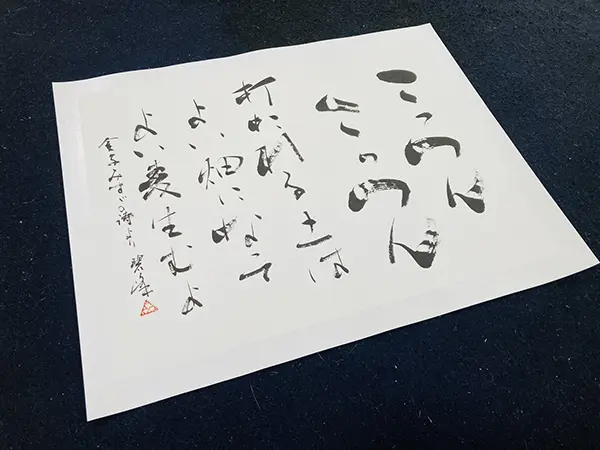 こっつん
こっつん
打たれる土は
よい畑になって
よい麦生むよ
金子みすゞの詩より